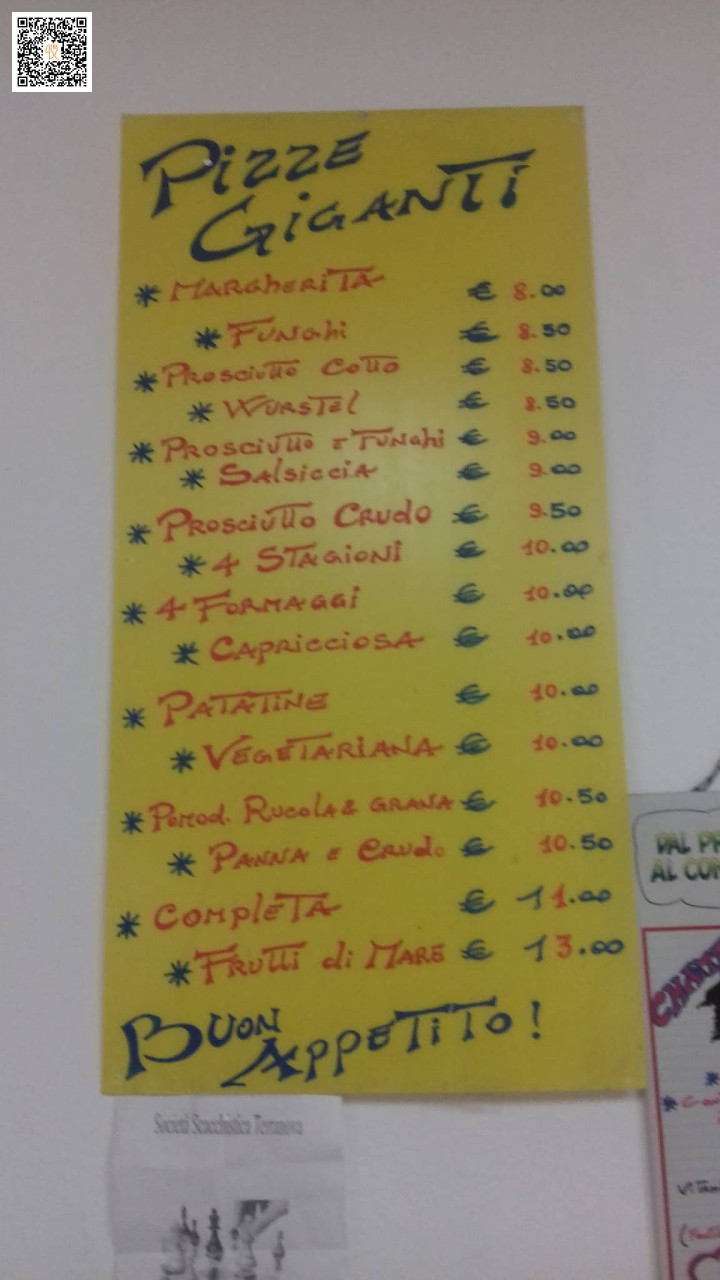 Pizze
Giganti
* Margherita € 8.00
* Funghi € 8.50
* Prosciutto Cotto € 8.50
* Wurstel € 8.50
* Prosciutto e Funghi € 9.00
* Salsiccia € 9.00
* Prosciutto Crudo € 9.50
* 4 Stagioni € 10.00
* 4 Formaggi € 10.00
* Capricciosa € 10.00
* Patatine € 10.00
* Vegetariana € 10.00
* Pomod. Rucola & Grana € 10.50
* Panna e Crudo € 10.50
* Completa € 11.00
* Frutti di Mare € 13.00
Buon
Appetito!
Società Scacchistica Terranova
DAL
AL